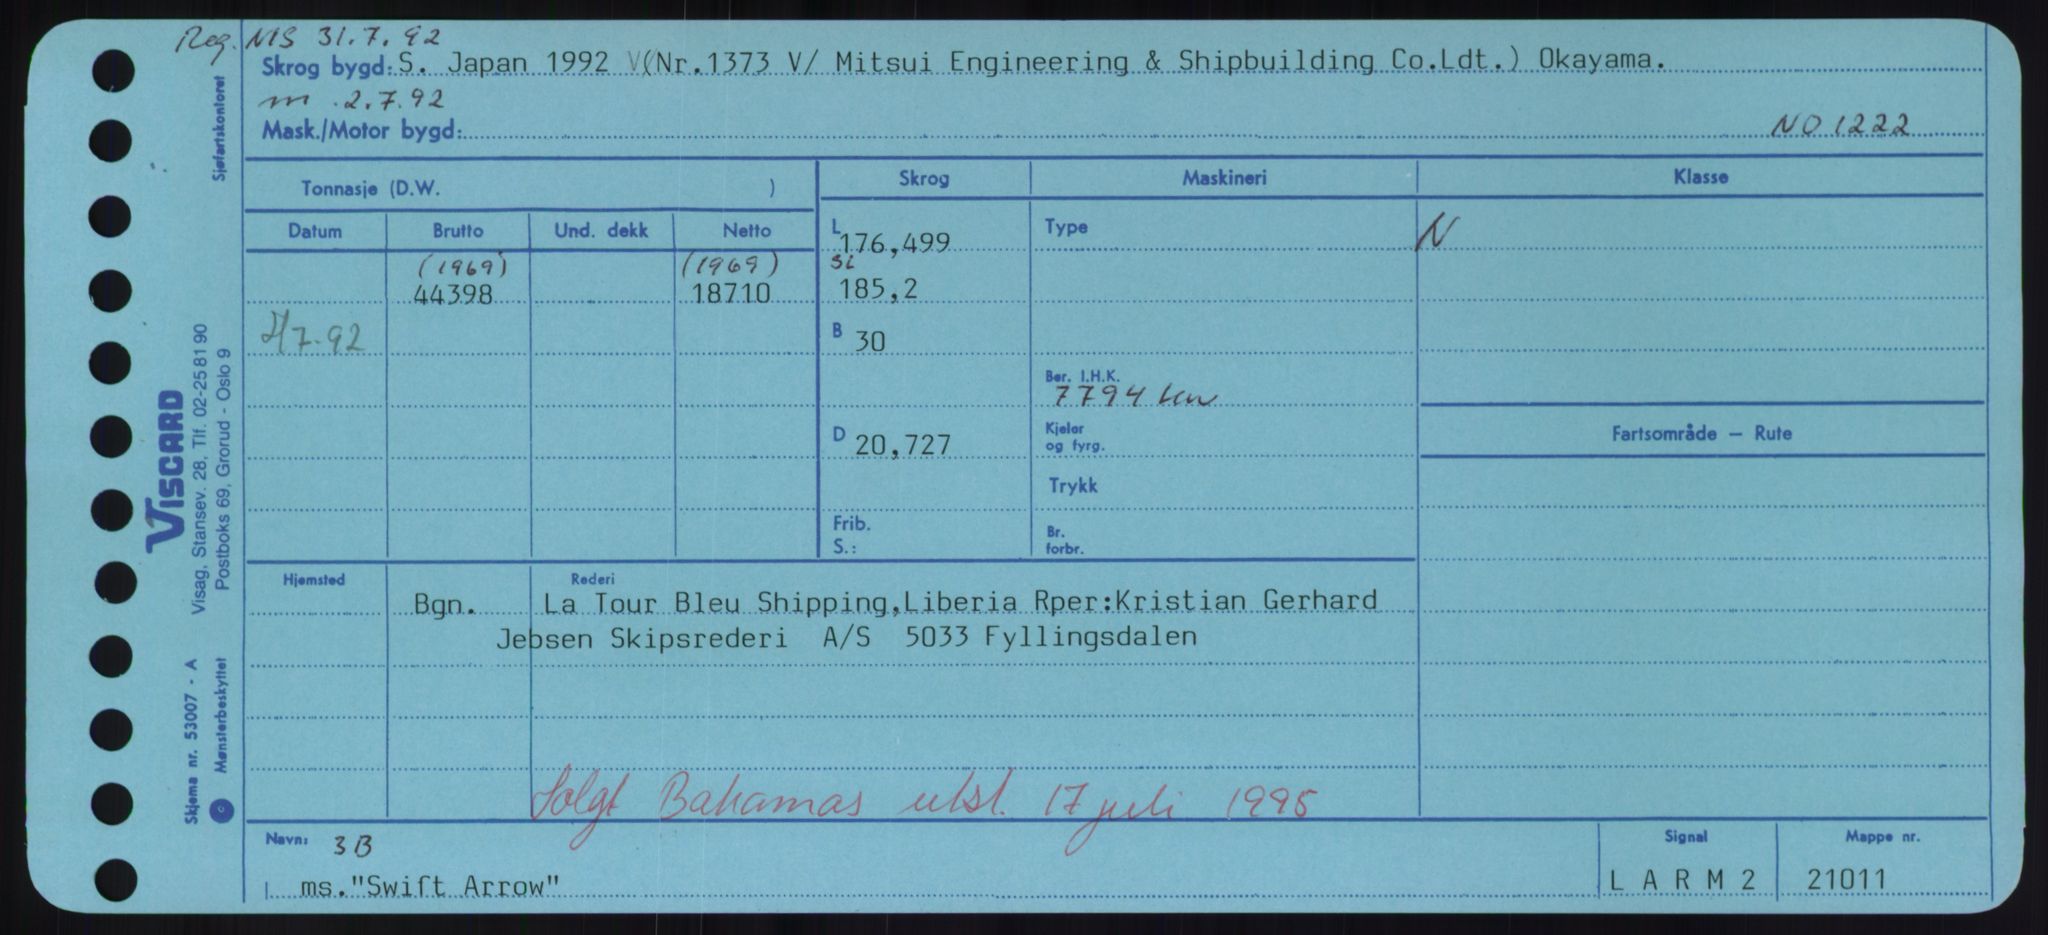 Reg. NIS 31.7.92
Skrog bygd: S. Japan 1992 V(Nr.1373 V/ Mitsui Engineering & Shipbuilding Co.Ldt.) Okayama.
m 2.7.92
Mask./Motor bygd: NO 1222
Tonnasje (D.W. )
Skrog Maskineri Klasse
Datum Brutto Und. dekk Netto
L 176,499 Type N
(1969) (1969) SL
44398 18710 185,2
2/7-92 B 30
Ber. I.H.K.
7794 kw
D 20,727 Kjeler og fyrg.
Fartsområde — Rute
Trykk
Frib.
S.:
Br. forbr.
Hjemsted Rederi
Bgn. La Tour Bleu Shipping,Liberia Rper:Kristian Gerhard
Jebsen Skipsrederi A/S 5033 Fyllingsdalen
Solgt Bahamas utsl. 17 juli 1995
Navn: 3B Signal Mappe nr.
ms."Swift Arrow" L A R M 2 21011
Sjøfartskontoret
VISCARD
Visag, Stansev. 28, Tlf. 02-25 81 90
Postboks 69, Grorud - Oslo 9
Skjema nr. 53007 - A
© Mønsterbeskyttet